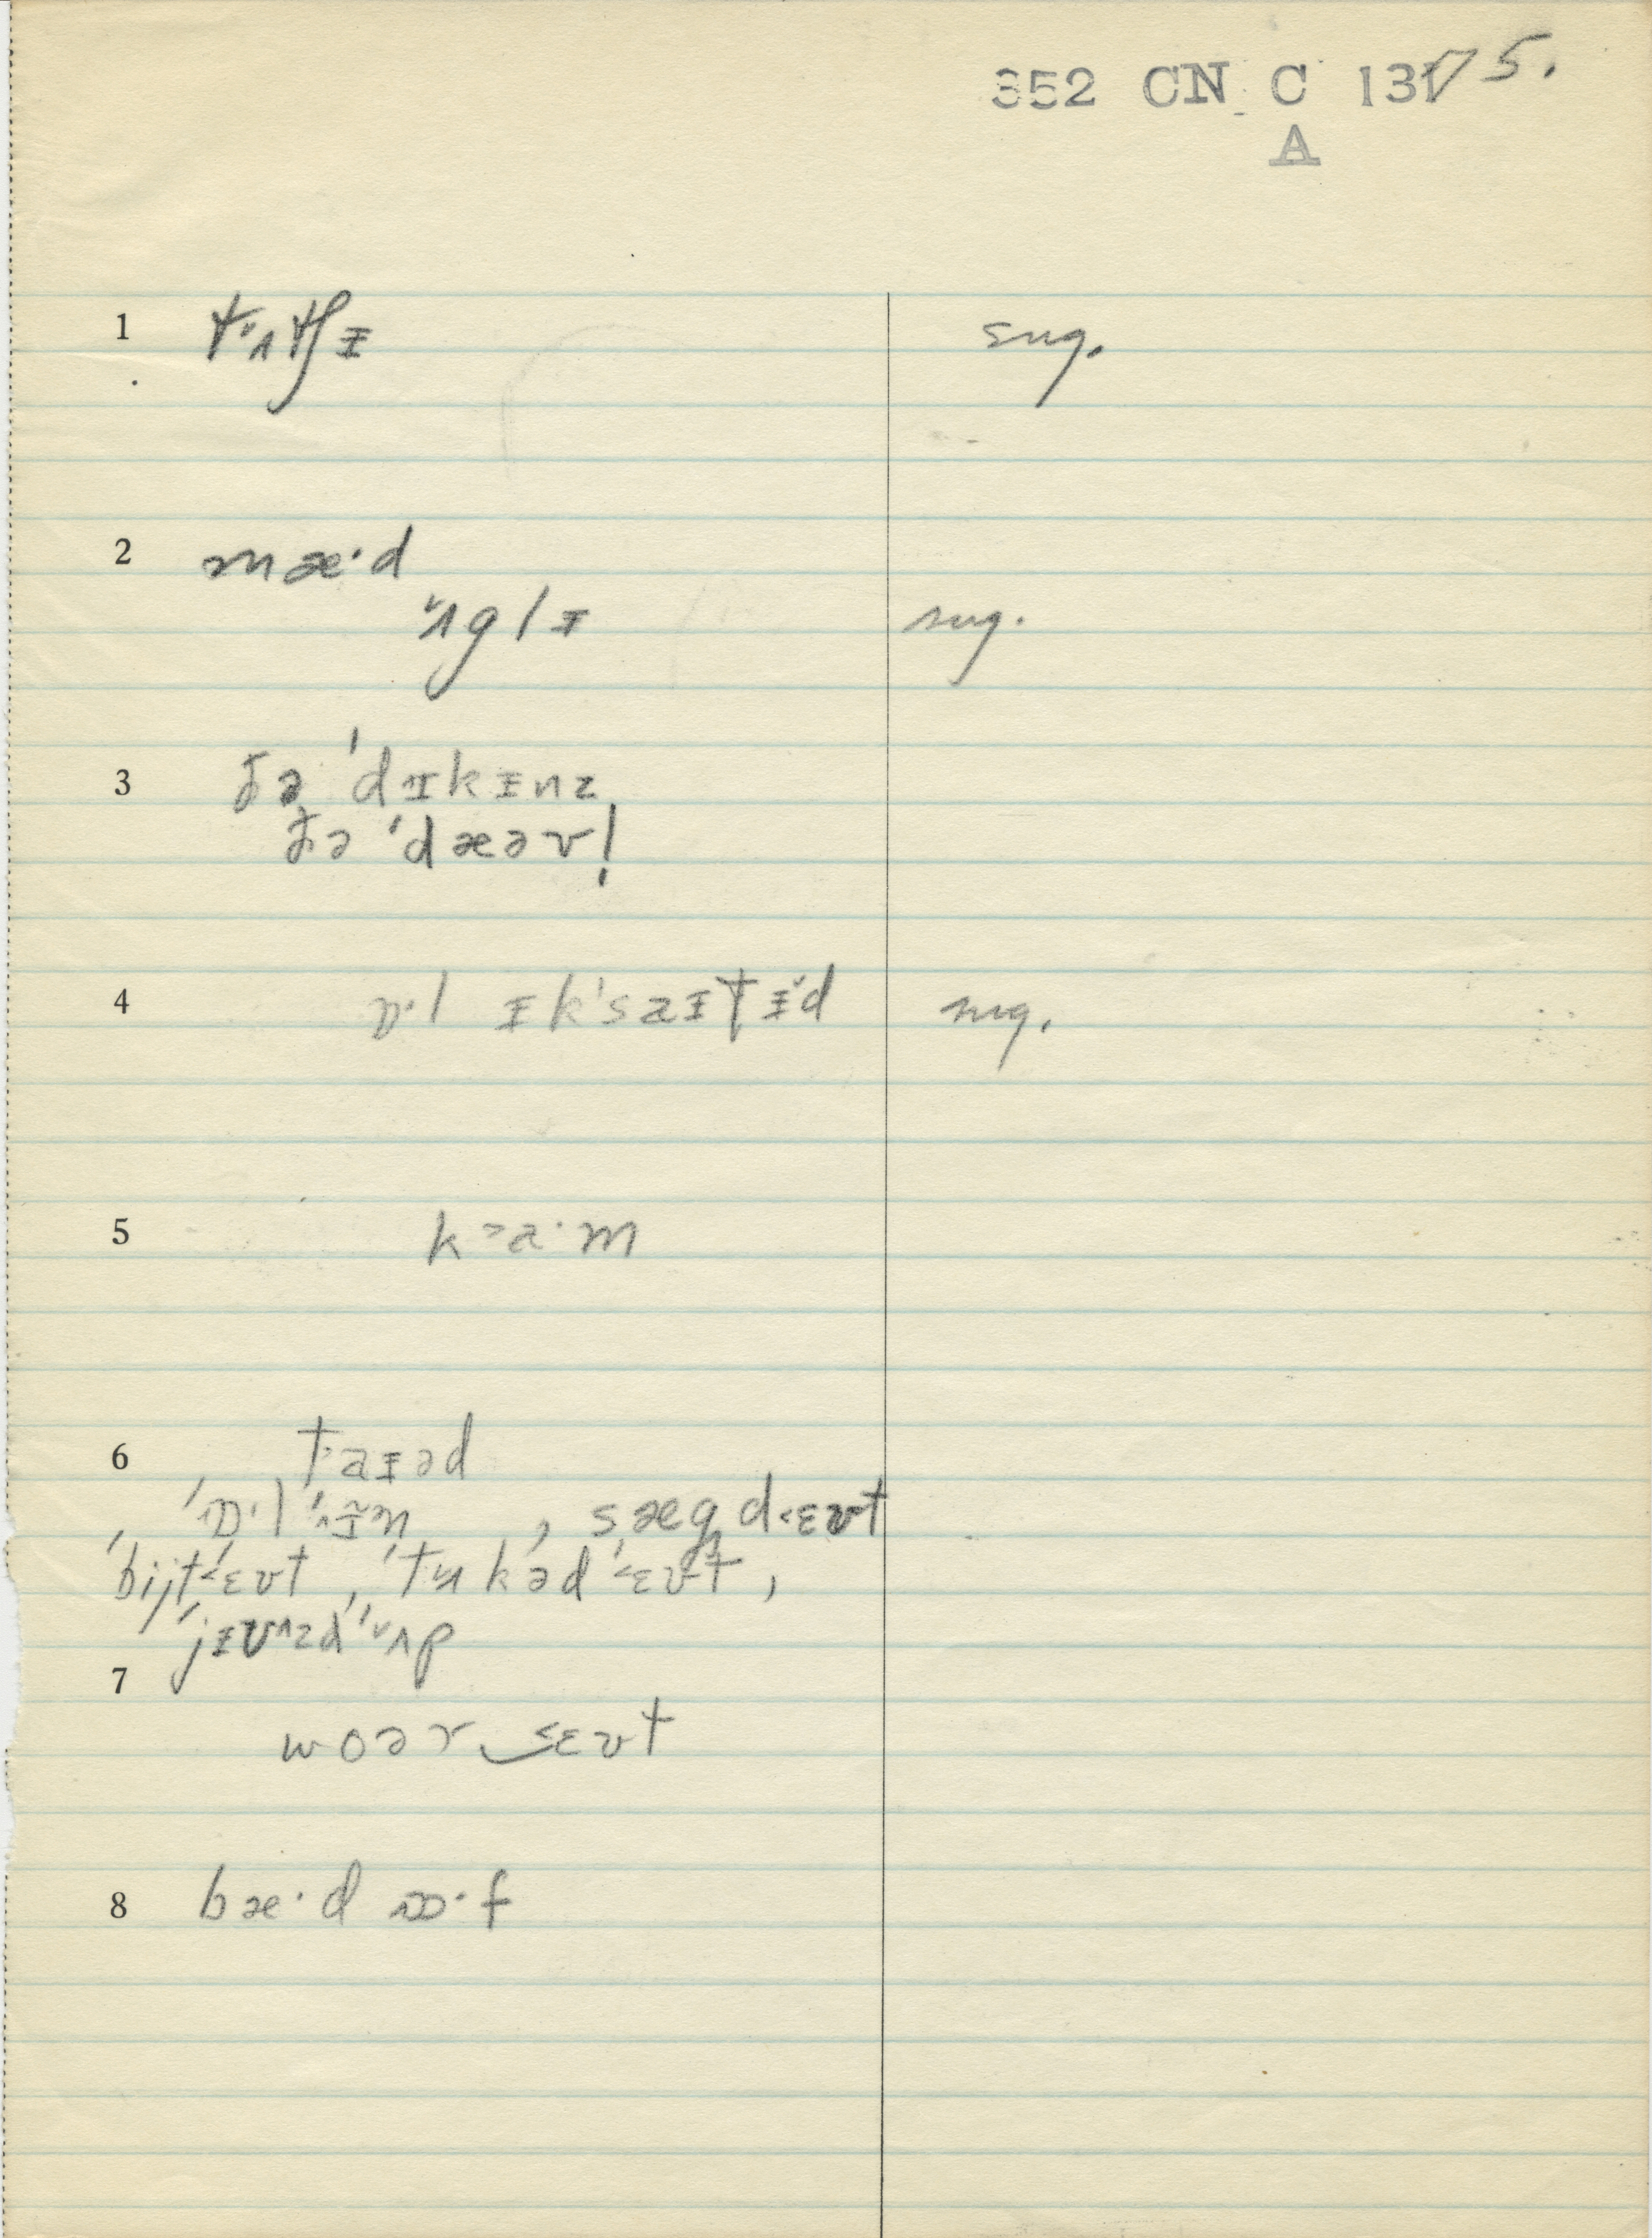 352 CN C 131/5.
A
1 t˅ʌtʃɪ sug.
2 mæ·d
˅ʌglɪ sug.
3 ðə ˈdɪkɪnz
ðə ˈdæəv!
4 ɒ·l ɪkˈsaɪtɪ˅d sug.
5 k>a·m
6 t>aɪəd
ˈɒ·l ˈɪ̃n , sægd<ɛʊt
ˈbijtˈ<ɛʊt , ˈtʌkəd ˈ<ɛʊt ,
ˈjɪʊ^zd ˈ˅ʌp
7
woər‿<ɛʊt
8 bæ·d ɒ·f